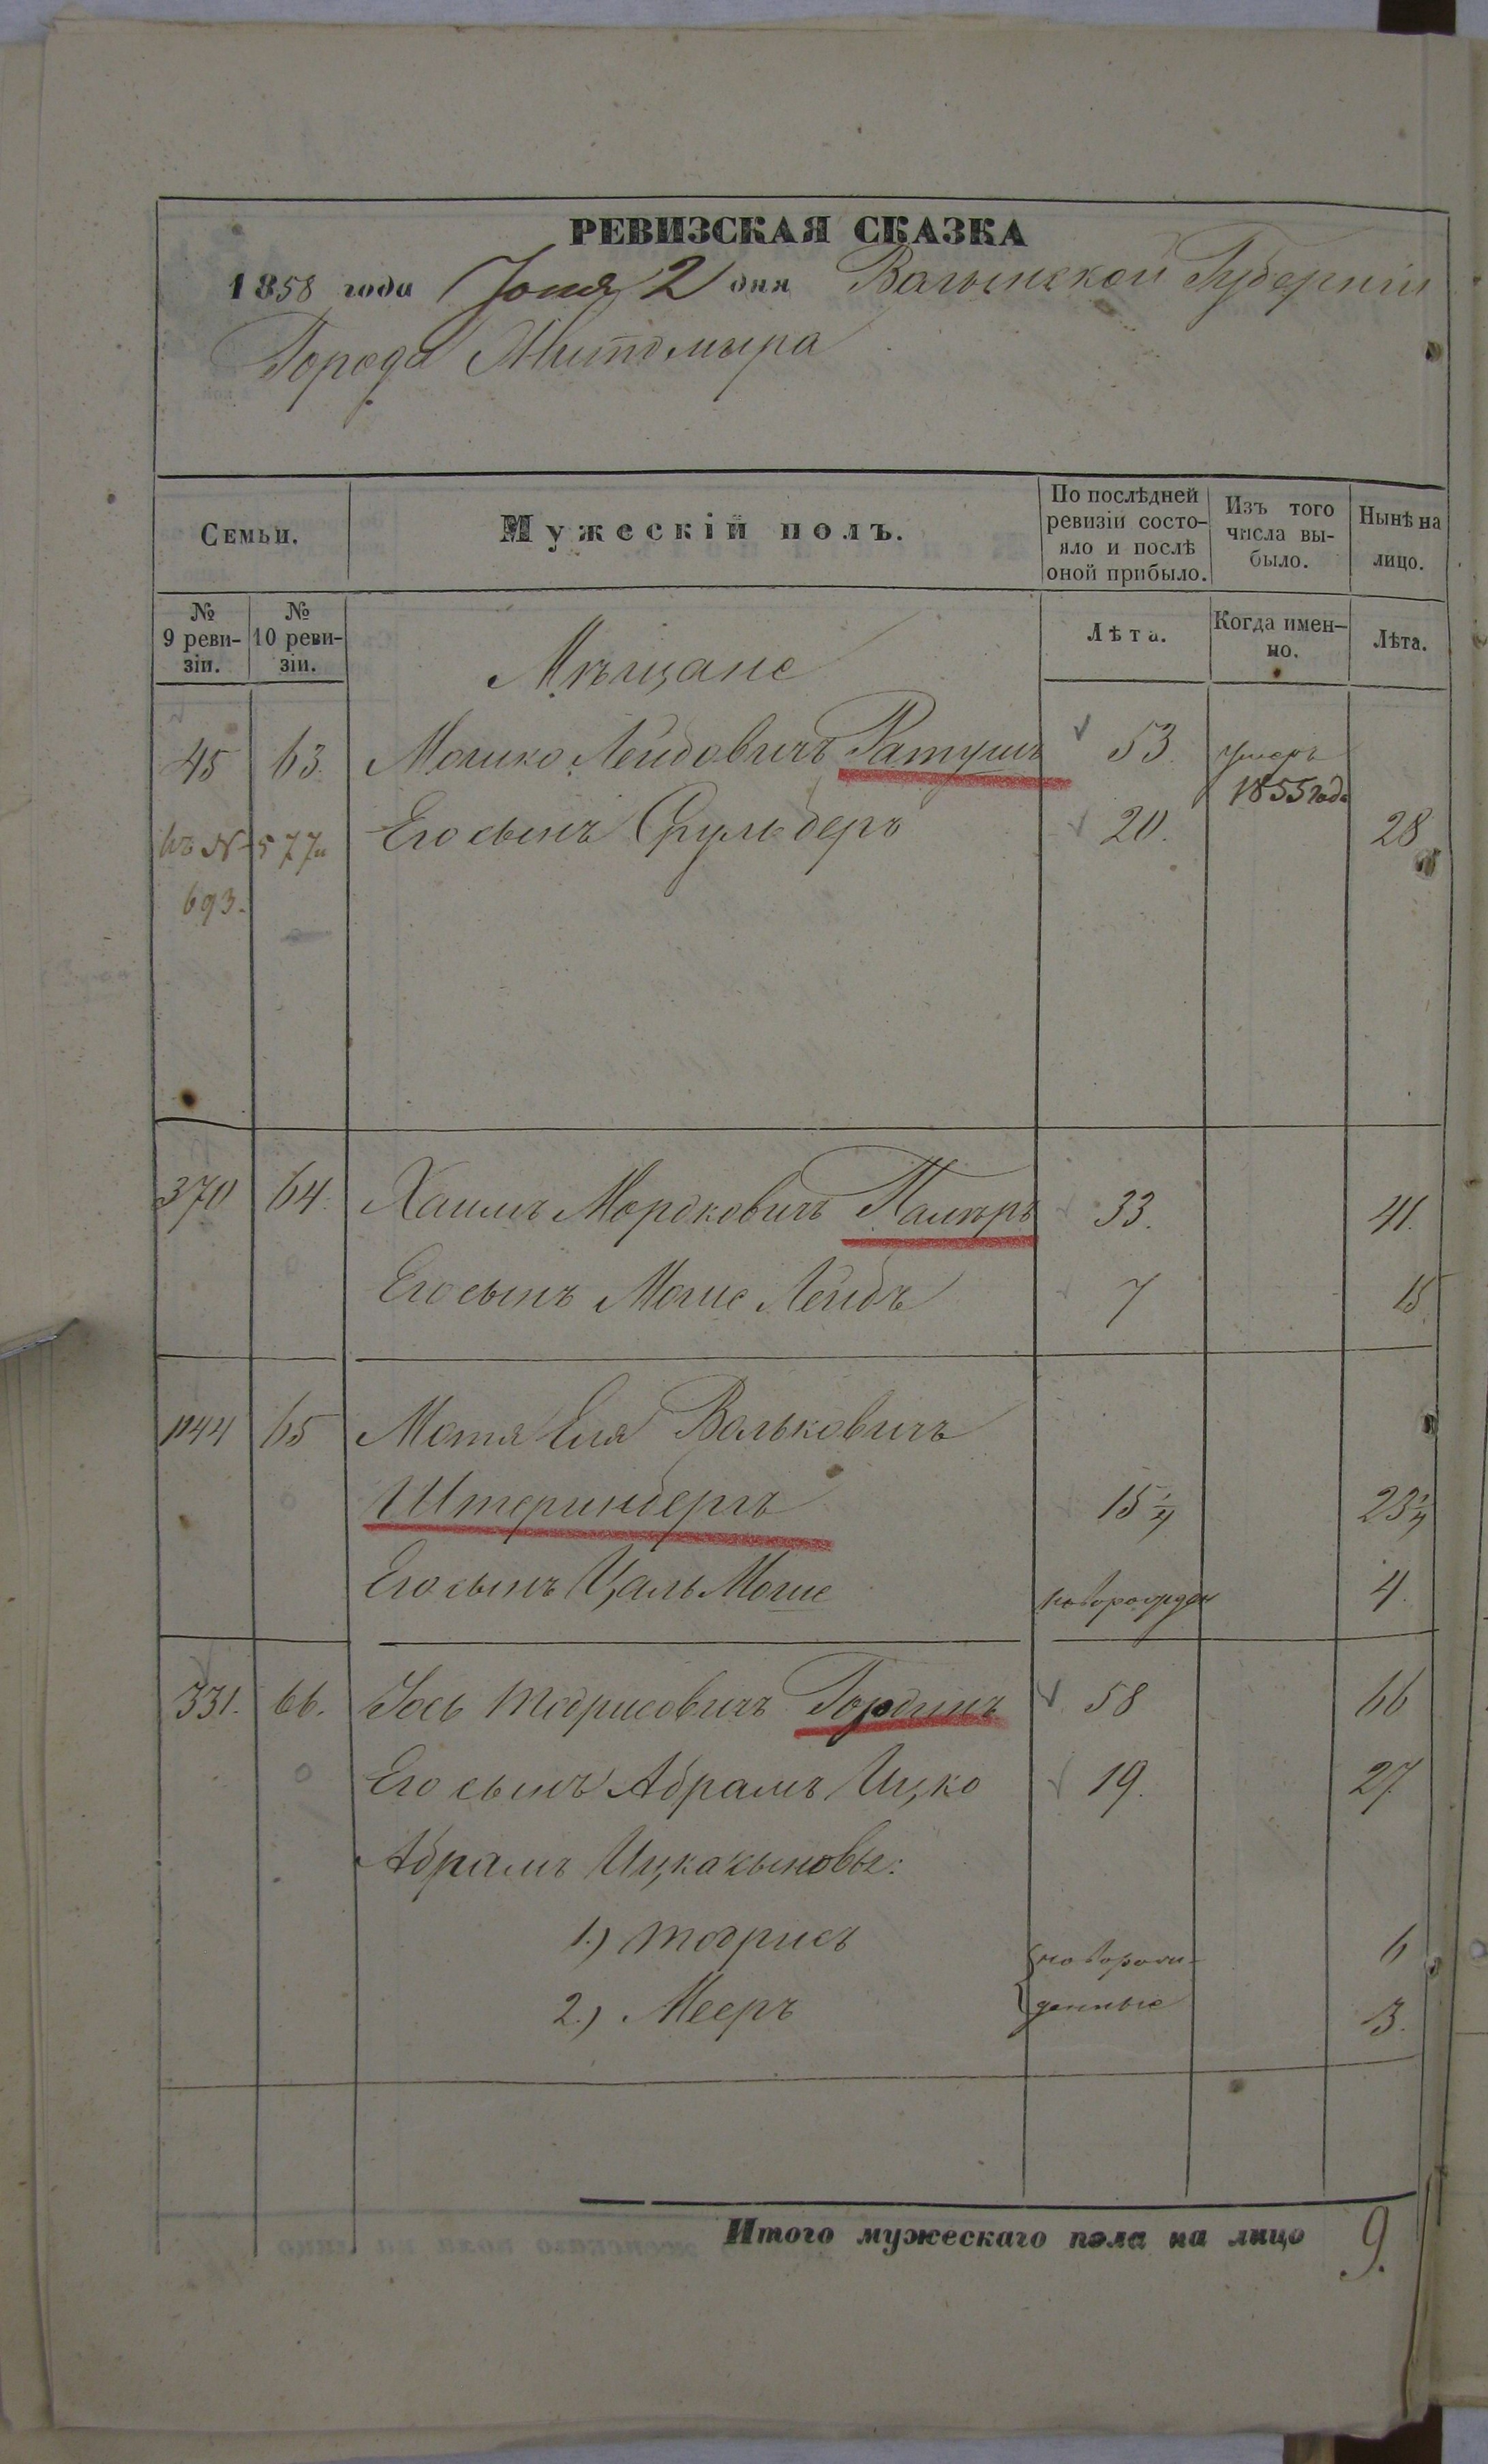 РЕВИЗСКАЯ СКАЗКА
1858 года Іюня 2 дня Волынской Губерніи
Города Житомира
Семьи.
Мужескій полъ.
По послѣдней ревизіи состояло и послѣ оной прибыло.
Изъ того числа выбыло.
Нынѣ на лицо.
№ 9 ревизіи.
№ 10 ревизіи.
Лѣта.
Когда именно.
Лѣта.
Мѣщане
45 63. Мошко Лейбовичъ Ратушъ 53. умеръ 1855 года
Его сынъ Сруль беръ 20. 28
къ № 577 и
693.
370 64. Хаимъ Мордковичъ 33. 41.
Его сынъ Моше Лейбъ 7 15
1144 65 Мотя Еля Вольковичъ
Штеринбергъ 15 1/4 23 1/4
Его сынъ Цаль Моше новорожден 4.
331. 66. Іось Тодрисовичъ Гординъ 58 66
Его сынъ Абрамъ Ицко 19. 27
Абрамъ Ицка сыновья:
1.) Тодрисъ новорож- 6
2.) Мееръ денные 3.
Итого мужескаго пола на лицо 9.